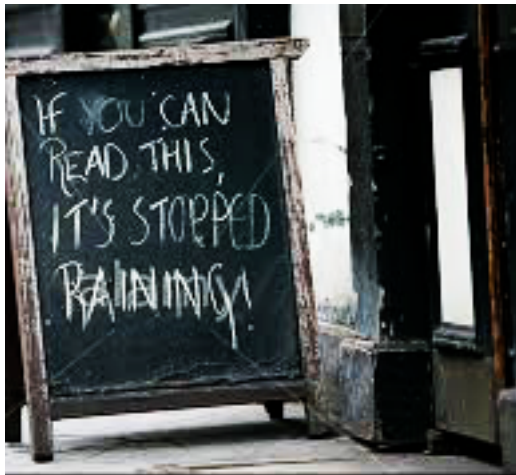 IF YOU CAN
READ THIS,
IT'S STOPPED
RAINING!